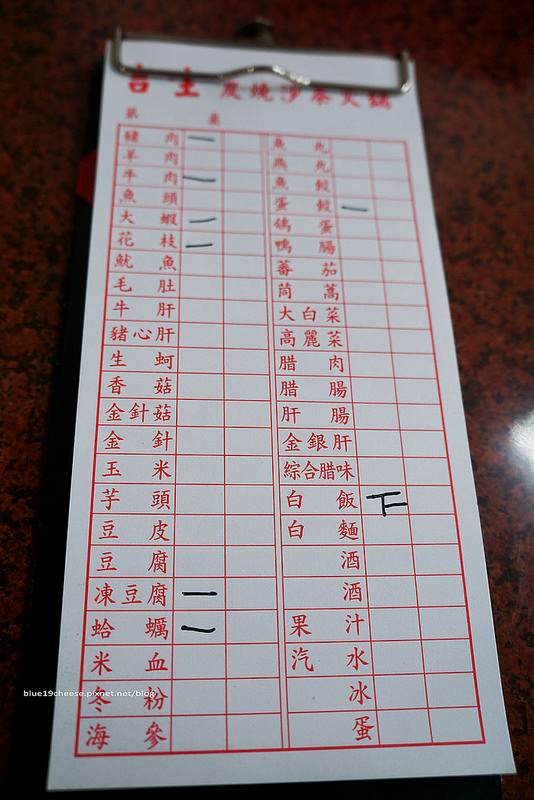 生 燒沙茶火鍋
第 桌
豬肉 一
羊肉
牛肉 一
魚頭
大蝦 一
花枝 一
魷魚
毛肚
牛肝
豬心肝
生蚵
香菇
金針菇
金針
玉米
芋頭
豆皮
豆腐
凍豆腐 一
蛤蠣 一
米血
冬粉
海參
魚丸
燕丸
魚餃
蛋餃 一
鴿蛋
鴨腸
蕃茄
茼蒿
大白菜
高麗菜
腊肉
腊腸
肝腸
金銀肝
綜合腊味
白飯 下
白麵
酒
酒
果汁
汽水
冰
蛋
blue19cheese.pixnet.net/blog